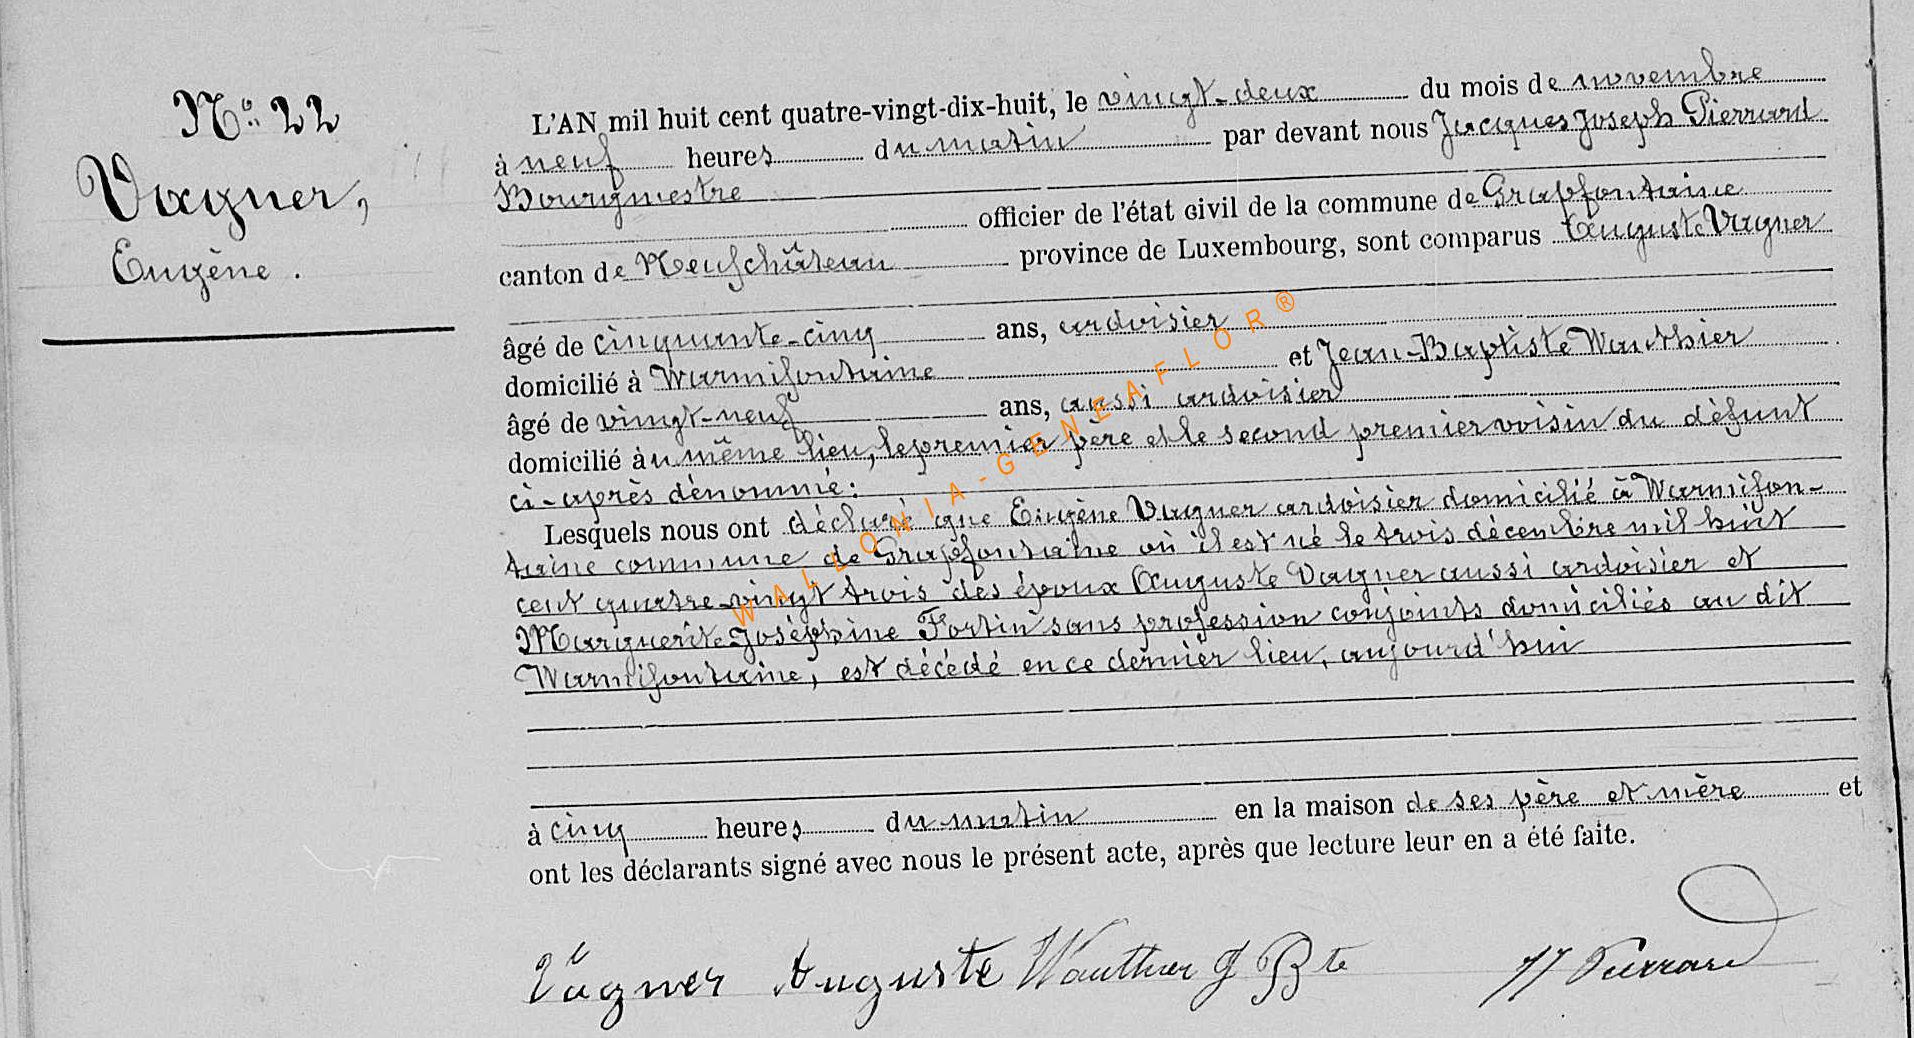 N° 22
Vagner,
Eugène.
L'AN mil huit cent quatre-vingt-dix-huit, le vingt-deux du mois de novembre
à neuf heures du matin par devant nous Jacques Joseph Pierrard
Bourgmestre
officier de l'état civil de la commune de Grapfontaine
canton de Neufchâteau province de Luxembourg, sont comparus Auguste Vagner
âgé de cinquante-cinq ans, ardoisier
domicilié à Warmifontaine et Jean-Baptiste Wauthier
âgé de vingt-neuf ans, aussi ardoisier
domicilié au même lieu, le premier père et le second premier voisin du défunt
ci-après dénommé:
Lesquels nous ont déclaré que Eugène Vagner ardoisier domicilié à Warmifon-
taine commune de Grapfontaine où il est né le trois décembre mil huit
cent quatre-vingt trois des époux Auguste Vagner aussi ardoisier et
Marguerite Joséphine Fortin sans profession conjoints domiciliés au dit
Warmifontaine, est décédé en ce dernier lieu, aujourd'hui
à cinq heures du matin en la maison de ses père et mère et
ont les déclarants signé avec nous le présent acte, après que lecture leur en a été faite.
Vagner Auguste Wauthier J Bte JJ Pierrard
WALLONIA-GENEAFLOR®